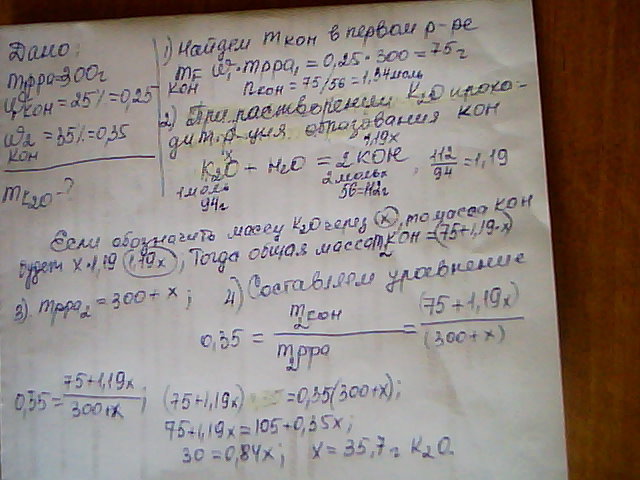 Дано:
mрра=300г
W₁ кон = 25% = 0,25
W₂ кон = 35% = 0,35
mK₂O - ?
1) Найдем m кон в первом р-ре
m кон = W₁ · mрра₁ = 0,25 · 300 = 75г
n кон = 75/56 = 1,34моль
2) При растворении K₂O прохо-
дит р-ция образования кон
x 1,19x
K₂O + H₂O = 2KOH ; 112/94 = 1,19
1моль 2моль
94г 56=112г
Если обозначить массу K₂O через x, то масса кон
будет x·1,19 (1,19x); Тогда общая масса m₂ кон = (75+1,19·x)
3) mрра₂ = 300 + x ; 4) Составляем уравнение
0,35 = m₂кон / m₂рра = (75+1,19x) / (300+x)
0,35 = 75+1,19x / 300+x ; (75+1,19x) = 0,35(300+x);
75+1,19x = 105+0,35x;
30 = 0,84x ; x = 35,7 г K₂O.